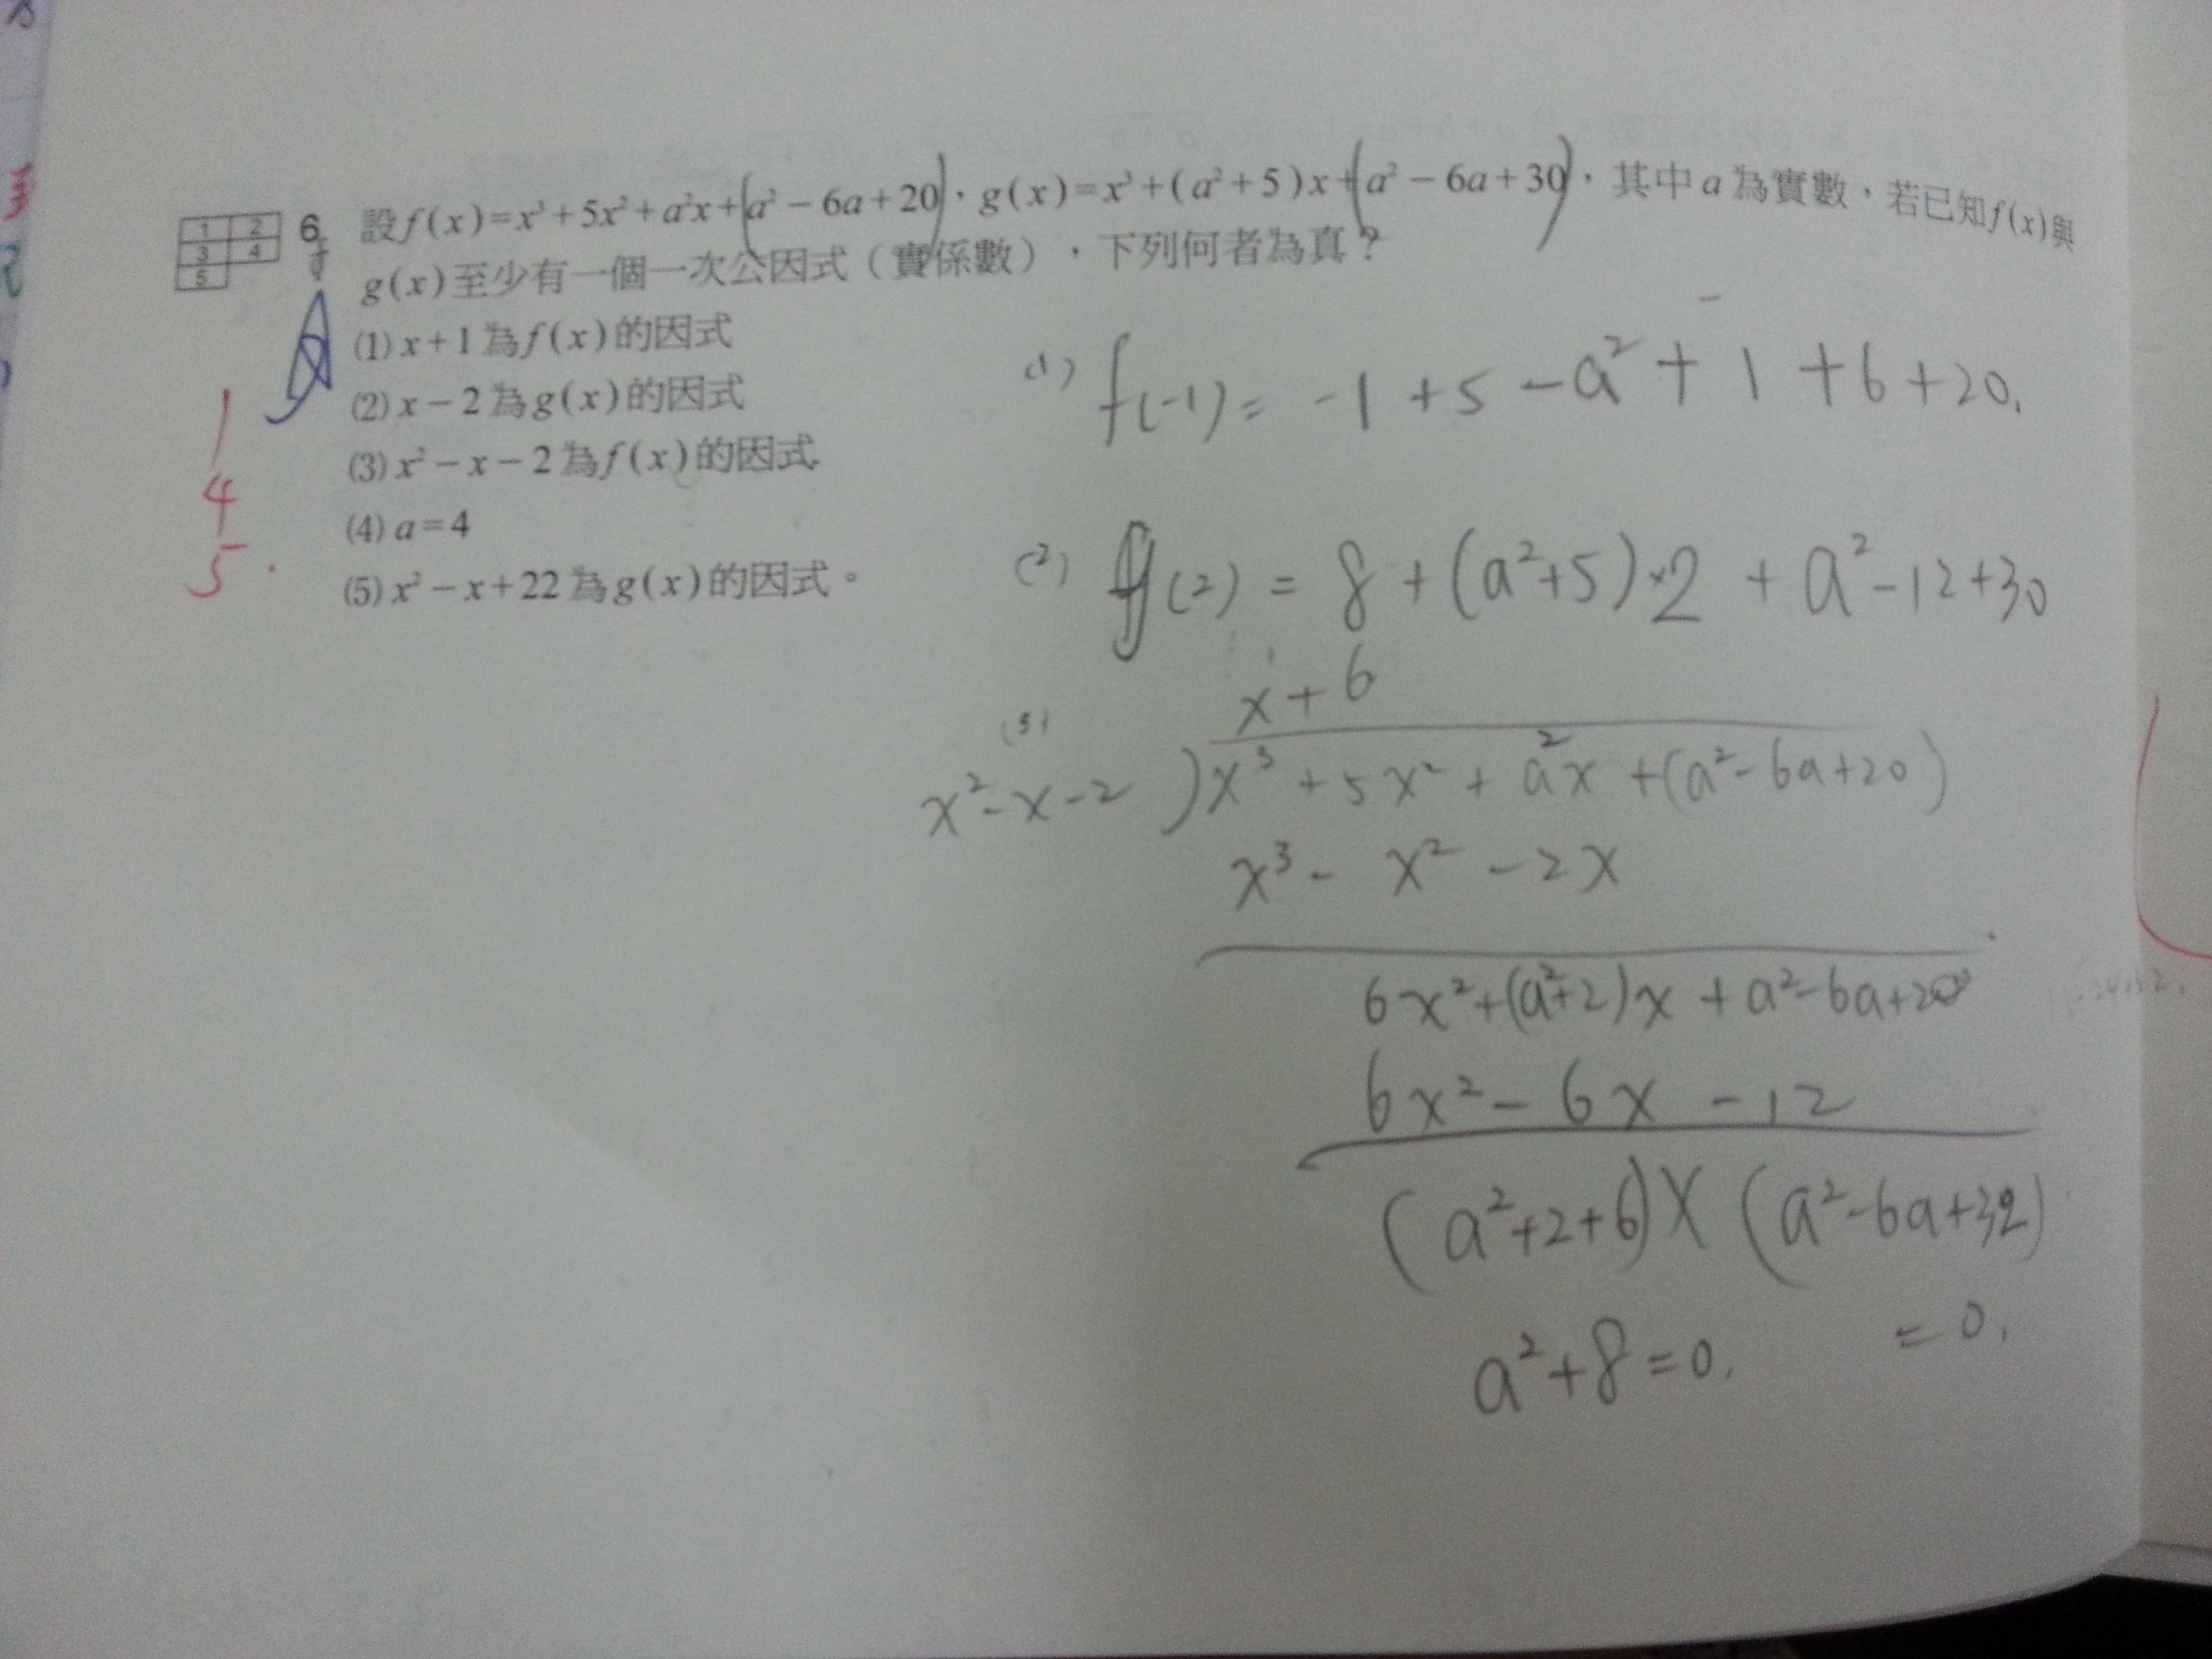 1 2
3 4
5
6. 設f(x)=x³+5x²+a²x+(a²−6a+20),g(x)=x³+(a²+5)x+(a²−6a+30),其中a為實數,若已知f(x)與
g(x)至少有一個一次公因式(實係數),下列何者為真?
(1) x+1為f(x)的因式
(2) x−2為g(x)的因式
(3) x²−x−2為f(x)的因式
(4) a=4
(5) x²−x+22為g(x)的因式。
1
4
5.
(1) f(-1)= -1+5-a²+1+6+20.
(2) g(2) = 8+(a²+5)×2 + a²-12+30
x+6
x²-x-2 )x³+5x²+a²x+(a²-6a+20)
x³- x² -2x
6x²+(a²+2)x+a²-6a+20
6x²-6x-12
(a²+2+6)X (a²-6a+32)
a²+8=0. =0.